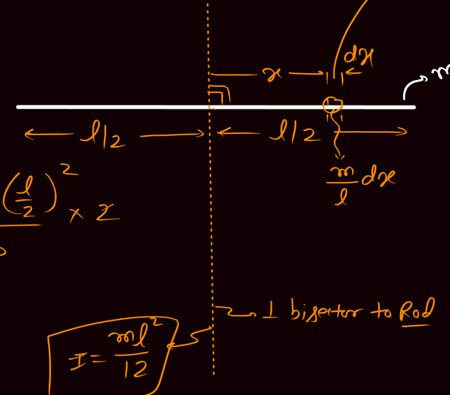 dx
x
m
l/2
l/2
m/l dx
(l/2)² × 2
⊥ bisector to Rod
I = ml²/12